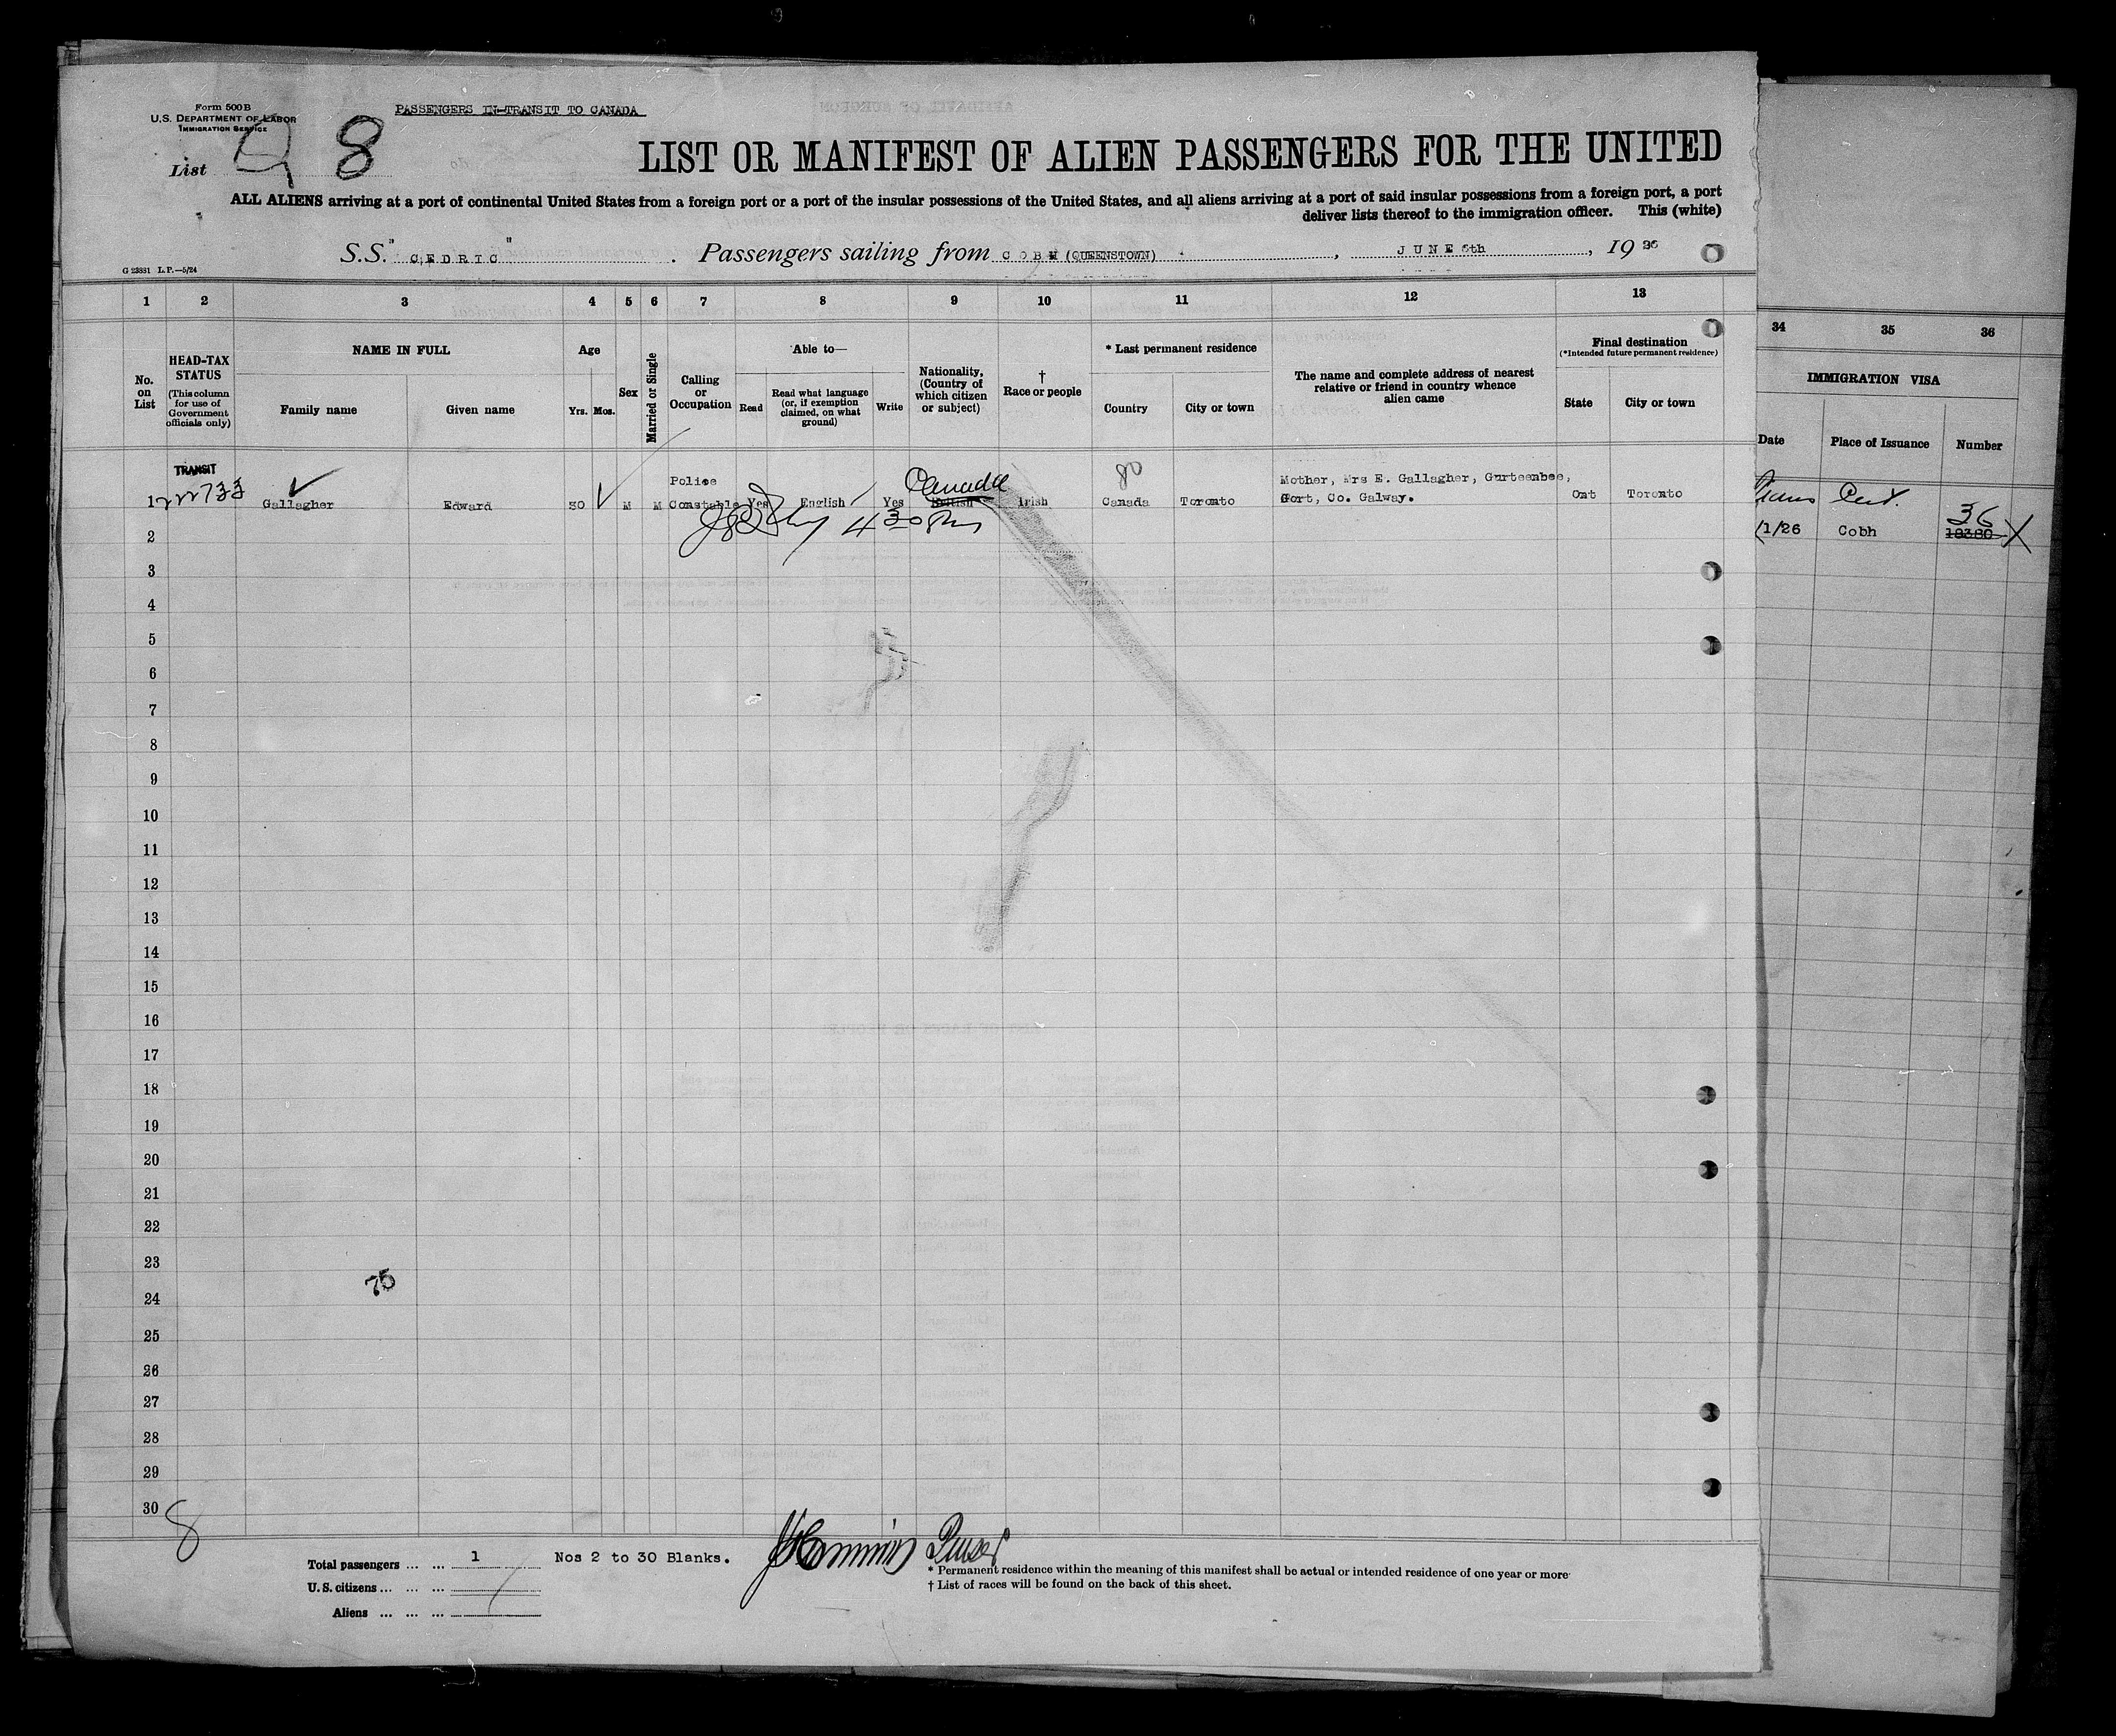 Form 500 B
U.S. DEPARTMENT OF LABOR
IMMIGRATION SERVICE
PASSENGERS IN-TRANSIT TO CANADA
List 8
LIST OR MANIFEST OF ALIEN PASSENGERS FOR THE UNITED
ALL ALIENS arriving at a port of continental United States from a foreign port or a port of the insular possessions of the United States, and all aliens arriving at a port of said insular possessions from a foreign port, a port
deliver lists thereof to the immigration officer. This (white)
S.S. "CEDRIC". Passengers sailing from COBH (QUEENSTOWN), JUNE 6th, 19 26
G 23881 L.P.—5/24
1 2 3 4 5 6 7 8 9 10 11 12 13
34 35 36
No. on List
HEAD-TAX STATUS
(This column for use of Government officials only)
NAME IN FULL
Family name
Given name
Age
Yrs. Mos.
Sex
Married or Single
Calling or Occupation
Able to—
Read
Read what language (or, if exemption claimed, on what ground)
Write
Nationality. (Country of which citizen or subject)
† Race or people
* Last permanent residence
Country
City or town
The name and complete address of nearest relative or friend in country whence alien came
Final destination
(*Intended future permanent residence)
State
City or town
IMMIGRATION VISA
Date
Place of Issuance
Number
TRANSIT
80
Canada
1 Gallagher Edward M M Police Constable Yes English Yes British Irish Canada Toronto Mother, Mrs E. Gallagher, Gurteenbee, Gort, Co. Galway. Ont Toronto
36
2
/1/26 Cobh 18380
3
4
5
6
7
8
9
10
11
12
13
14
15
16
17
18
19
20
21
22
23
75
24
25
26
27
28
29
30
8
Total passengers ... ... 1
Nos 2 to 30 Blanks.
Purser
U. S. citizens ... ... ...
Aliens ... ... ...
* Permanent residence within the meaning of this manifest shall be actual or intended residence of one year or more
† List of races will be found on the back of this sheet.